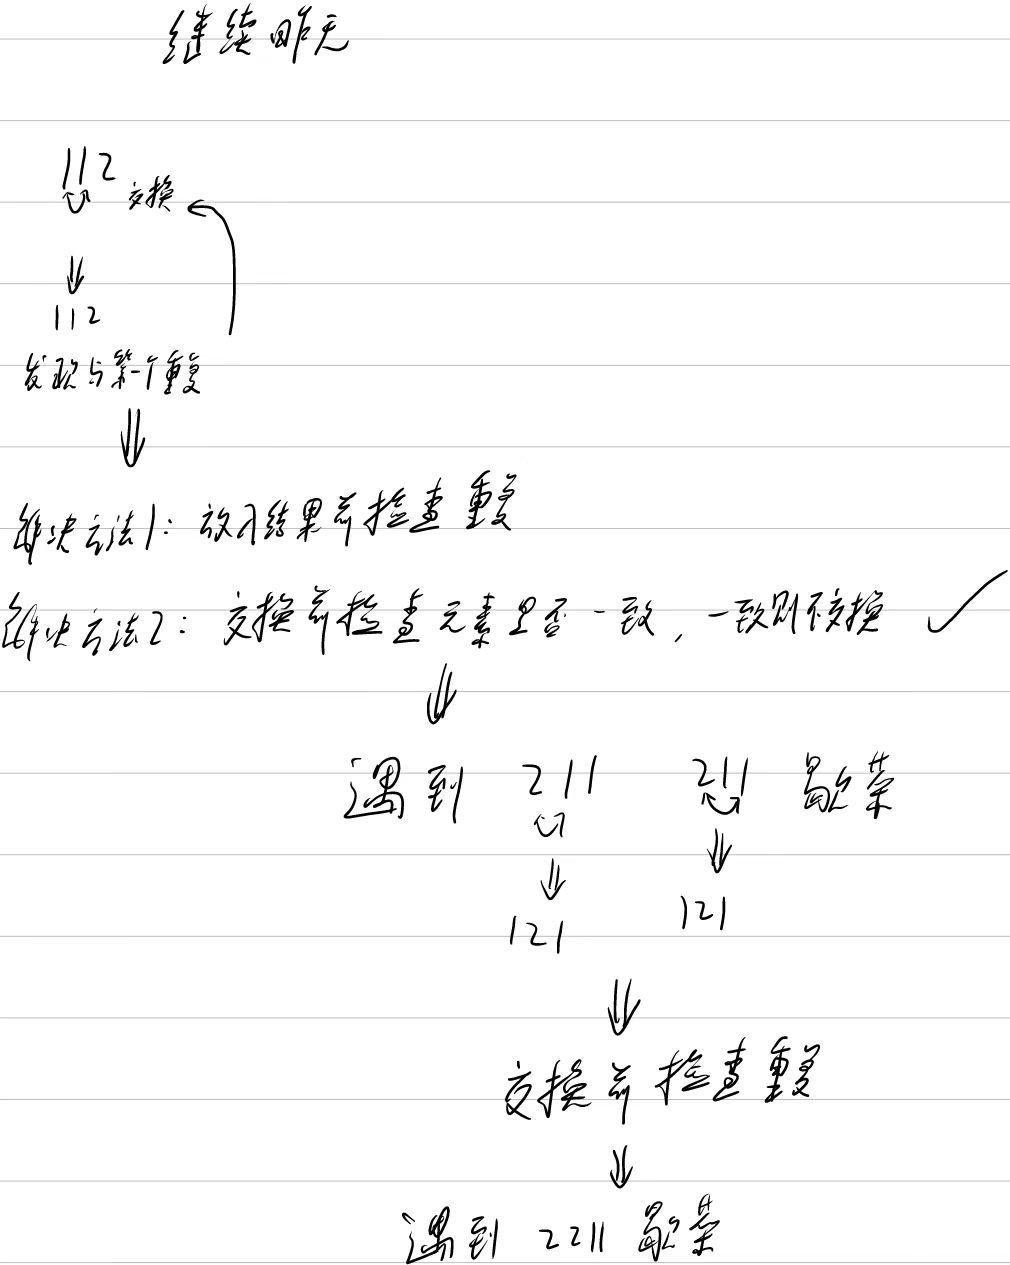 继续昨天
112
交换
112
发现与第一个重复
解决方法1: 放入结果前检查重复
解决方法2: 交换前检查元素是否一致, 一致则不交换
遇到 211 211 歇菜
121 121
交换前检查重复
遇到 2211 歇菜